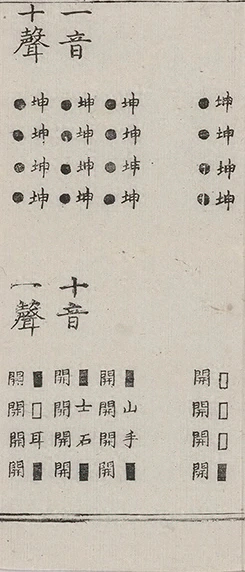 一音
十聲
坤坤坤坤
●●●●
坤坤坤坤
●●●●
坤坤坤坤
●●●●
坤坤坤坤
●●●●
十音
一聲
□□□■
開開開開
■山手■
開開開開
■士石■
開開開開
■□耳■
開開開開